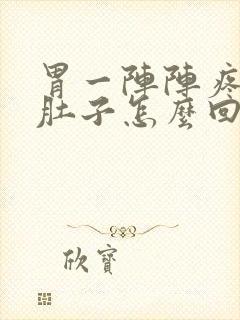 胃一陣陣疼
肚子怎麼回
欣寶